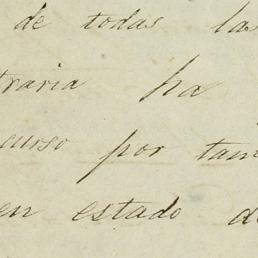 de todas las
traria ha
curso por tan
en estado de